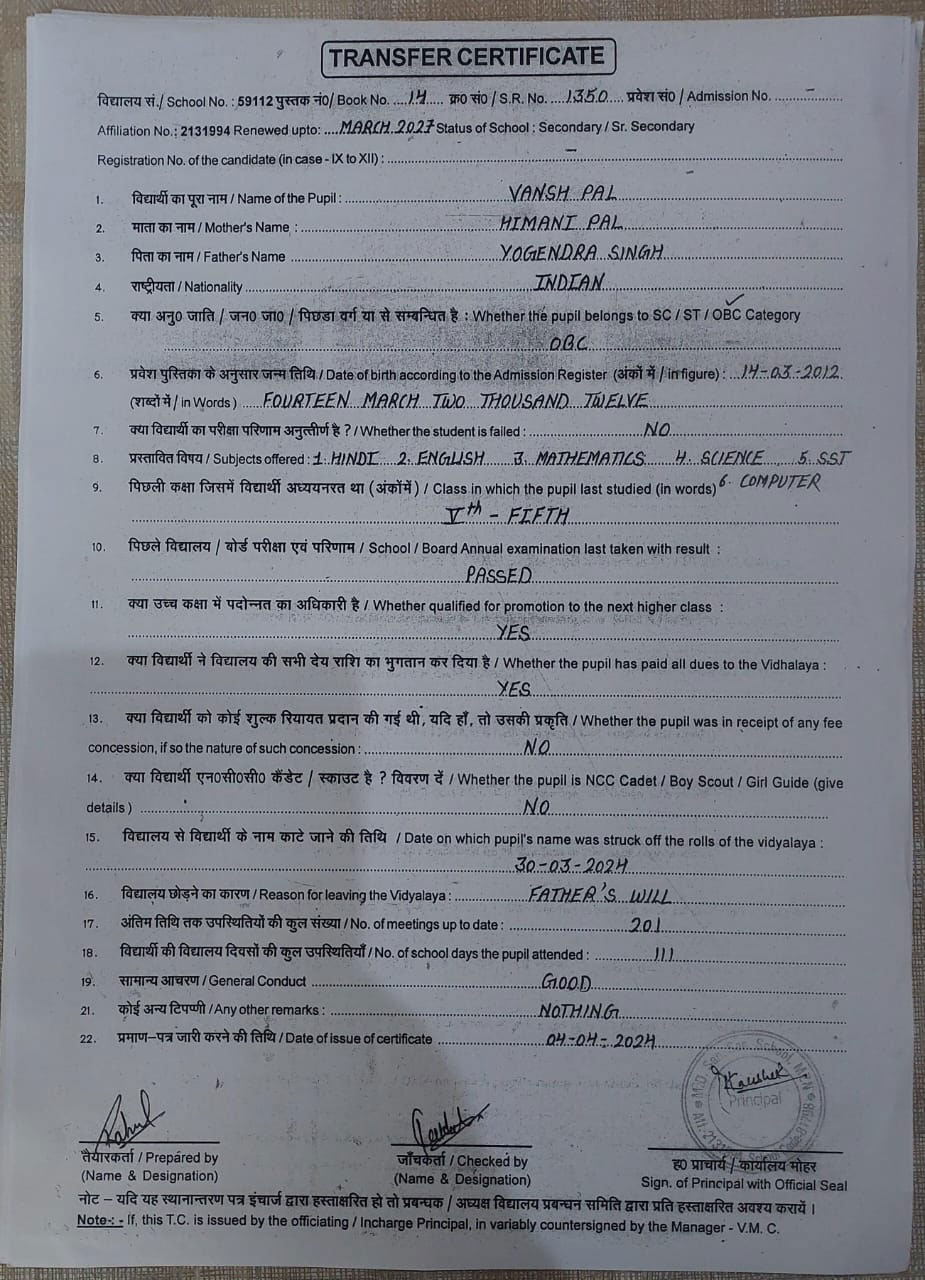 TRANSFER CERTIFICATE
विद्यालय सं./ School No. : 59112 पुस्तक नं0/ Book No. ....14..... क्र0 सं0 / S.R. No. ...1350.... प्रवेश सं0 / Admission No. ..........–........
Affiliation No.: 2131994 Renewed upto: ....MARCH.2027 Status of School : Secondary / Sr. Secondary
Registration No. of the candidate (in case - IX to XII) : ........................–........................
1. विद्यार्थी का पूरा नाम / Name of the Pupil : ............ VANSH PAL ............
2. माता का नाम / Mother's Name : ............ HIMANI PAL ............
3. पिता का नाम / Father's Name ............ YOGENDRA SINGH ............
4. राष्ट्रीयता / Nationality ............ INDIAN ............
5. क्या अनु0 जाति / जन0 जा0 / पिछडा वर्ग या से सम्बन्धित है : Whether the pupil belongs to SC / ST / OBC ✓ Category
............ OBC ............
6. प्रवेश पुस्तिका के अनुसार जन्म तिथि / Date of birth according to the Admission Register (अंकों में / in figure) : ...14-03-2012
(शब्दों में / in Words ) ..... FOURTEEN MARCH TWO THOUSAND TWELVE ............
7. क्या विद्यार्थी का परीक्षा परिणाम अनुत्तीर्ण है ? / Whether the student is failed : ............ NO ............
8. प्रस्तावित विषय / Subjects offered : 1. HINDI 2. ENGLISH 3. MATHEMATICS 4. SCIENCE 5. SST
6. COMPUTER
9. पिछली कक्षा जिसमें विद्यार्थी अध्ययनरत था (अंकोंमें) / Class in which the pupil last studied (in words)
............ Vth - FIFTH ............
10. पिछले विद्यालय / बोर्ड परीक्षा एवं परिणाम / School / Board Annual examination last taken with result :
............ PASSED ............
11. क्या उच्च कक्षा में पदोन्नत का अधिकारी है / Whether qualified for promotion to the next higher class :
............ YES ............
12. क्या विद्यार्थी ने विद्यालय की सभी देय राशि का भुगतान कर दिया है / Whether the pupil has paid all dues to the Vidhalaya :
............ YES ............
13. क्या विद्यार्थी को कोई शुल्क रियायत प्रदान की गई थी, यदि हाँ, तो उसकी प्रकृति / Whether the pupil was in receipt of any fee
concession, if so the nature of such concession : ............ NO ............
14. क्या विद्यार्थी एन0सी0सी0 कैंडेट / स्काउट है ? विवरण दें / Whether the pupil is NCC Cadet / Boy Scout / Girl Guide (give
details ) ............ NO ............
15. विद्यालय से विद्यार्थी के नाम काटे जाने की तिथि / Date on which pupil's name was struck off the rolls of the vidyalaya :
............ 30-03-2024 ............
16. विद्यालय छोड़ने का कारण / Reason for leaving the Vidyalaya : ............ FATHER'S WILL ............
17. अंतिम तिथि तक उपस्थितियों की कुल संख्या / No. of meetings up to date : ............ 201 ............
18. विद्यार्थी की विद्यालय दिवसों की कुल उपस्थितियाँ / No. of school days the pupil attended : ............ 111 ............
19. सामान्य आचरण / General Conduct ............ GOOD ............
21. कोई अन्य टिपप्णी /Any other remarks : ............ NOTHING ............
22. प्रमाण–पत्र जारी करने की तिथि / Date of issue of certificate ............ 04-04-2024 ............
Principal
तैयारकर्ता / Prepared by
(Name & Designation)
जाँचकर्ता / Checked by
(Name & Designation)
ह0 प्राचार्य / कार्यालय मोहर
Sign. of Principal with Official Seal
नोट – यदि यह स्थानान्तरण पत्र इंचार्ज द्वारा हस्ताक्षरित हो तो प्रबन्धक / अध्यक्ष विद्यालय प्रबन्धन समिति द्वारा प्रति हस्ताक्षरित अवश्य करायें ।
Note-: - If, this T.C. is issued by the officiating / Incharge Principal, in variably countersigned by the Manager - V.M. C.